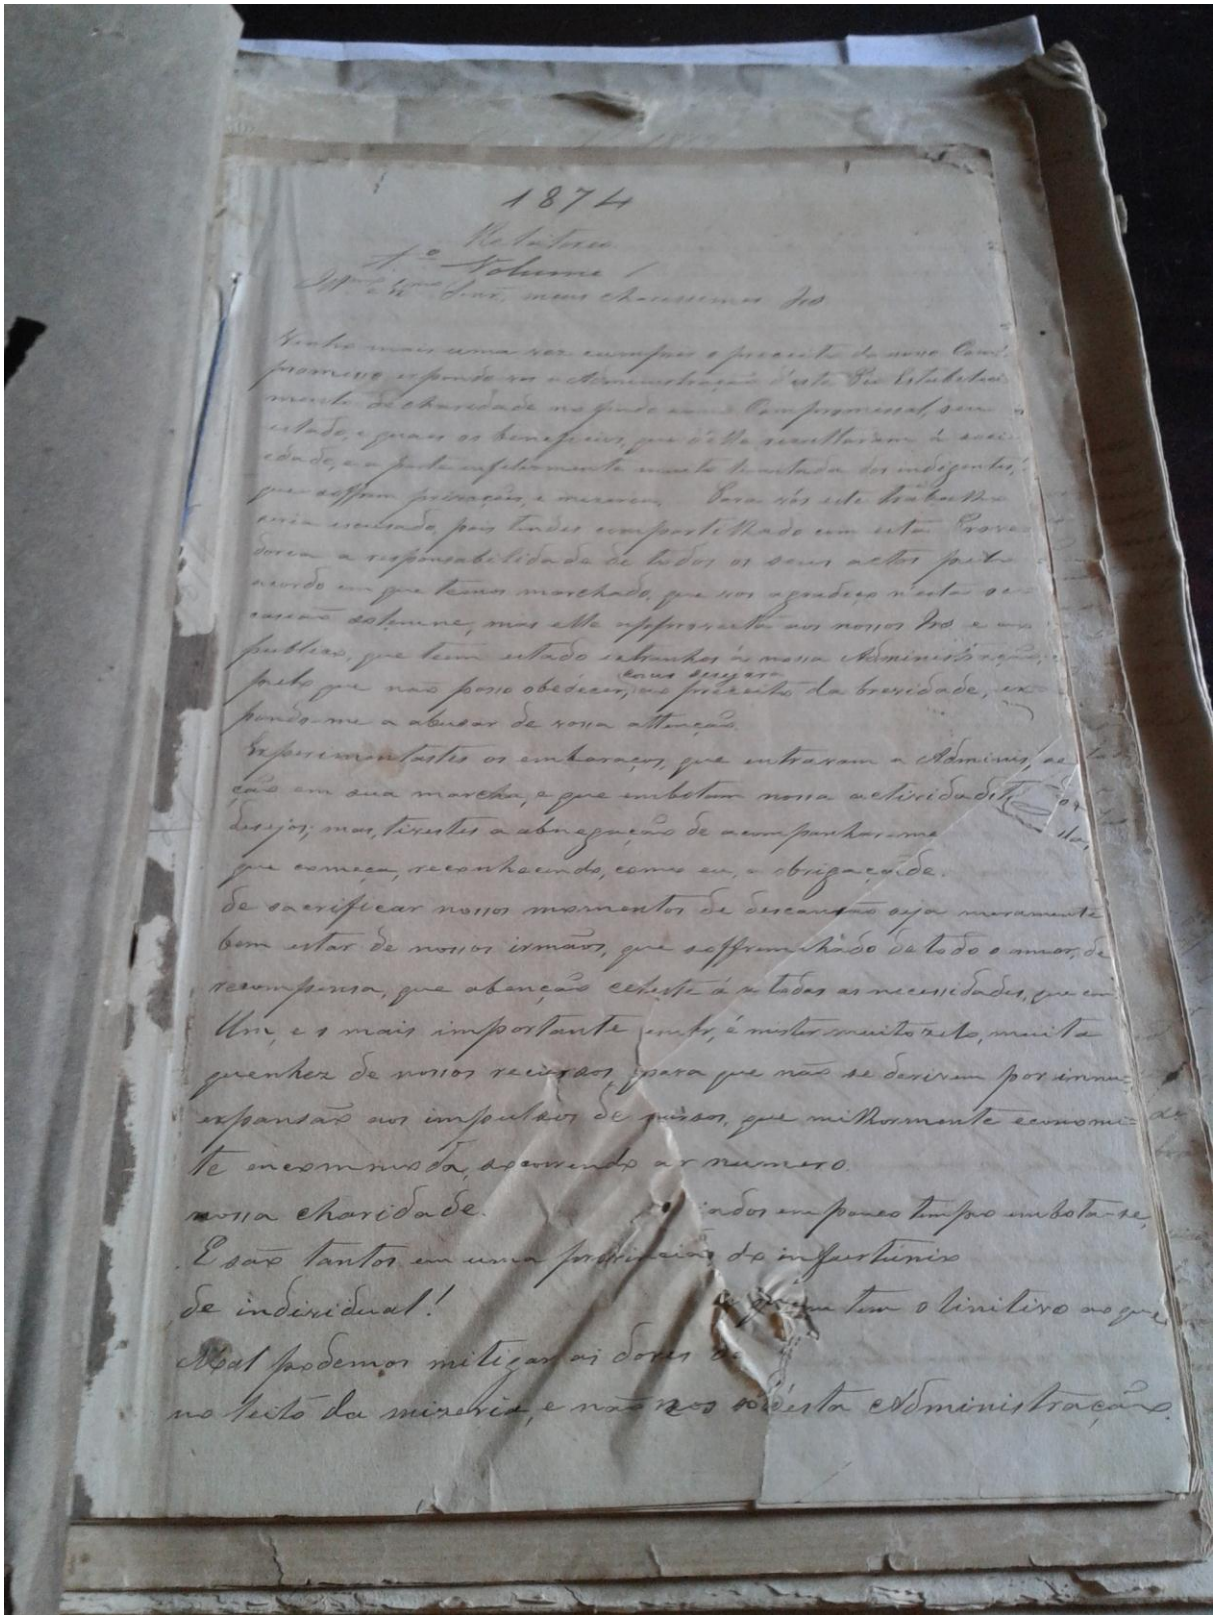 1874
Relatorio
1.º Volume
Senr.es meus charissimos Irs
Venho mais uma vez cumprir o preceito do nosso Com-
promisso expondo vos a Administração d'este Pio Estabeleci-
mento de charidade no Compromissal, seu
estado, e quaes os beneficios, que d'elle resultaram á soci-
edade, e a parte infelizmente muito dos indigentes,
que soffrem privações, e miseria. Para vós este trabalho
seria escusado, pois tendes compartilhado com esta Prove-
doria a responsabilidade de todos os seus actos pelo
acordo em que temos marchado, que vos agradeço n'esta oc-
casião solemne; mas elle appresenta aos nossos Irs e ao
publico, que tem estado extranhos á nossa Administração;
como desejara
pelo que não posso obedecer, ao preceito da brevidade, ex-
pondo-me a abusar de vossa attenção.
Experimentastes os embaraços, que entravam a Adminis
ção em sua marcha, e que embotam nossa actividade
desejos; mas, tivestes a abnegação de acompanhar-me
que começa, reconhecendo, como eu, a obrigação de.
de sacrificar nossos momentos de descanso seja meramente
bem estar de nossos irmãos, que soffrem de todo o amor, de
recompensa, que abenção celeste á a todas as necessidades, que em
Um, e o mais importante é mister muito zelo, muita
quenhez de nossos recursos, para que não se derivem por innu-
expansão aos impulsos de que milhormente economi-
te encommoda, socorrendo a r numero.
nossa charidade. indos em pouco tempo embota-se,
E são tantos em uma provincia do infortunio
de individual! tem o linitivo ao que
Mal podemos mitigar as dores de
no leito da mizeria, e não nos só d'esta Administração.